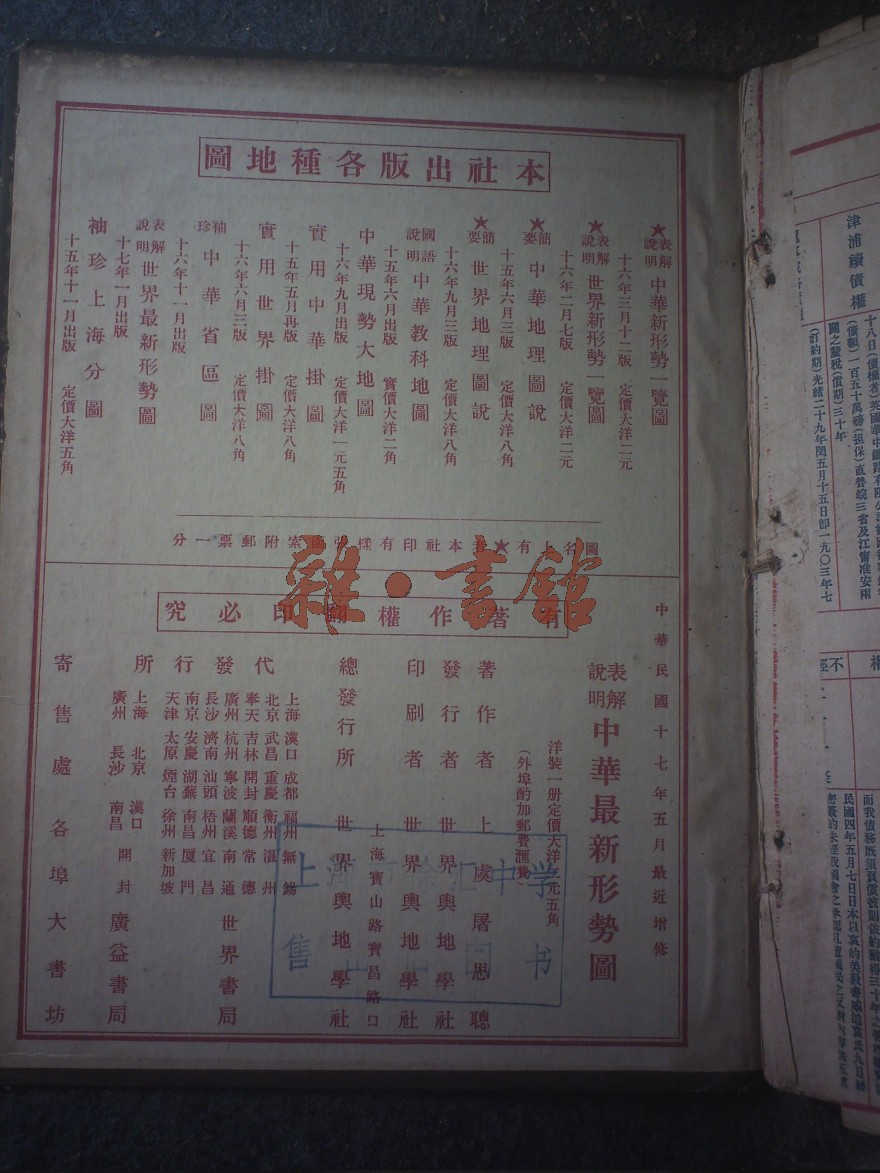 本社出版各種地圖
★表解說明 中華新形勢一覽圖
十六年三月十二版 定價大洋二元
★表解說明 世界新形勢一覽圖
十六年二月七版 定價大洋二元
★簡要 中華地理圖說
十五年六月三版 定價大洋八角
★簡要 世界地理圖說
十六年九月三版 定價大洋八角
國語說明 中華教科地圖
十五年六月出版 實價大洋二角
中華現勢大地圖
十六年九月出版 定價大洋一元五角
實用中華掛圖
十五年五月再版 定價大洋八角
實用世界掛圖
十六年六月三版 定價大洋八角
袖珍 中華省區圖
十六年十一月出版
表解說明 世界最新形勢圖
十七年一月出版
袖珍上海分圖
十五年十一月出版 定價大洋五角
圖名上有★者本社印有樣張函索附郵票一分
雜·書館
有著作權翻印必究
中華民國十七年五月最近增修
表解說明 中華最新形勢圖
洋裝一册定價大洋 元五角
(外埠酌加郵費匯費)
著作者 上虞屠思聰
發行者 世界輿地學社
印刷者 世界輿地學社
上海寶山路寶昌路口
總發行所 世界輿地學社
代發行所
上海 漢口 成都 福州 無錫
北京 武昌 重慶 衡州 溫州
奉天 吉林 開封 順德 常德
廣州 杭州 寧波 蘭溪 南通
長沙 濟南 汕頭 梧州 宜昌
南京 安慶 湖 蘇 南昌 厦門
天津 太原 煙台 徐州 新加坡
世界書局
上海 北京 漢口
廣州 長沙 南昌 開封
廣益書局
寄售處各埠大書坊
上海 徐汇中学
售 图书
津浦續債權
十八日(債權者)英國華中鐵路有限公司
(債額)一百五十萬磅(担保)直魯皖三省及江甯淮安兩
關之釐稅(債期)三十年
(訂約期)光緒二十九年閏五月十五日卽一九〇三年七
民國四年五月七日日本以哀的美敦書